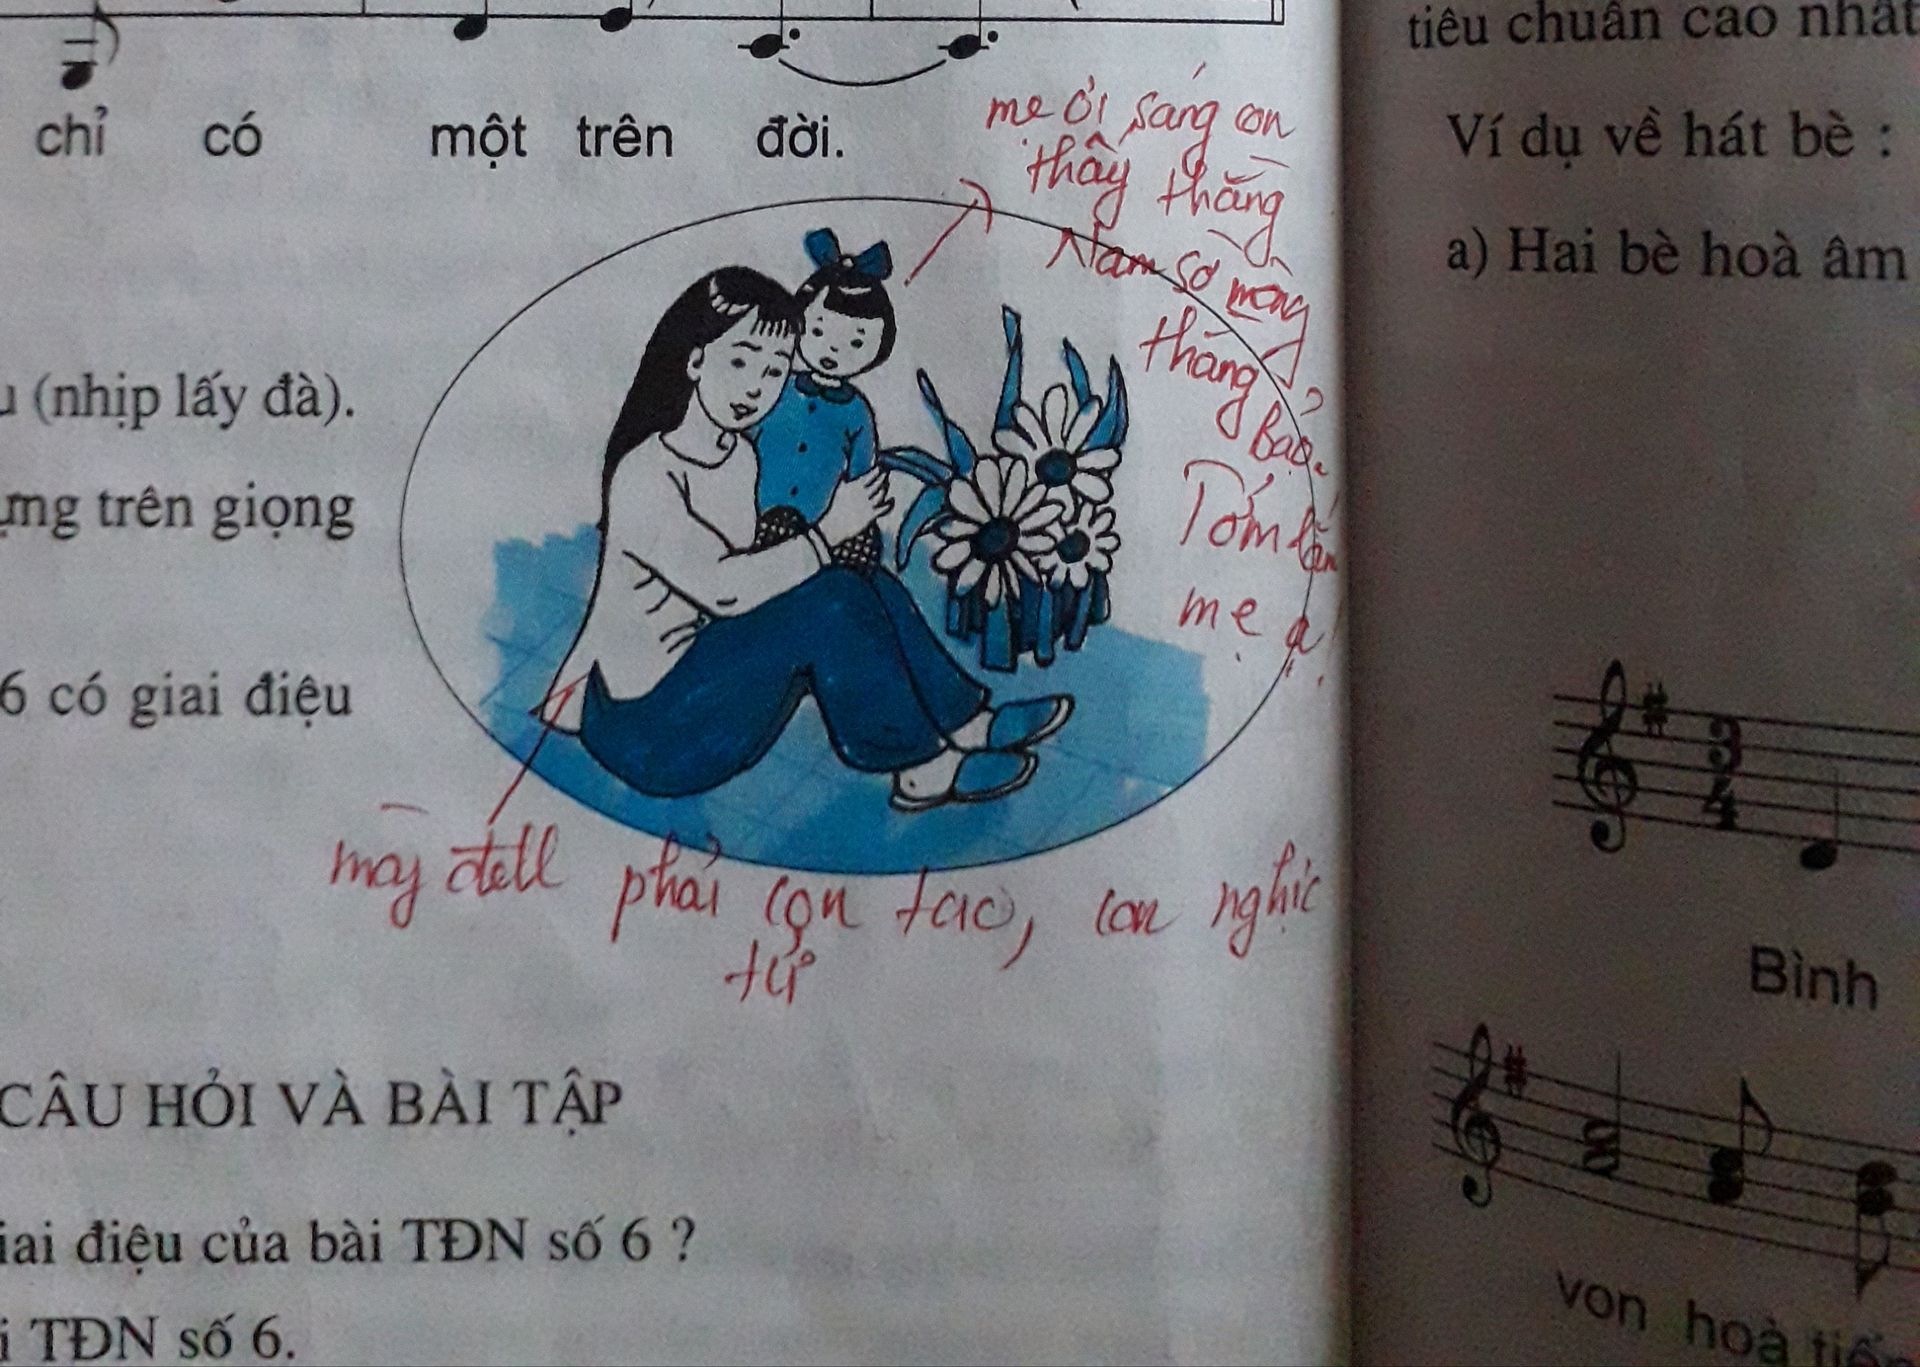 chỉ có một trên đời.
mẹ ơi sáng con
thấy thằng
Nam sờ mông
thằng
Bảo.
Tởm lắm
mẹ ạ.
(nhịp lấy đà).
trên giọng
6 có giai điệu
mày đell phải con tao, con nghịc
tử
CÂU HỎI VÀ BÀI TẬP
giai điệu của bài TĐN số 6 ?
TĐN số 6.
tiêu chuẩn cao nhất
Ví dụ về hát bè :
a) Hai bè hoà âm
3
4
Bình
von hoà tiến